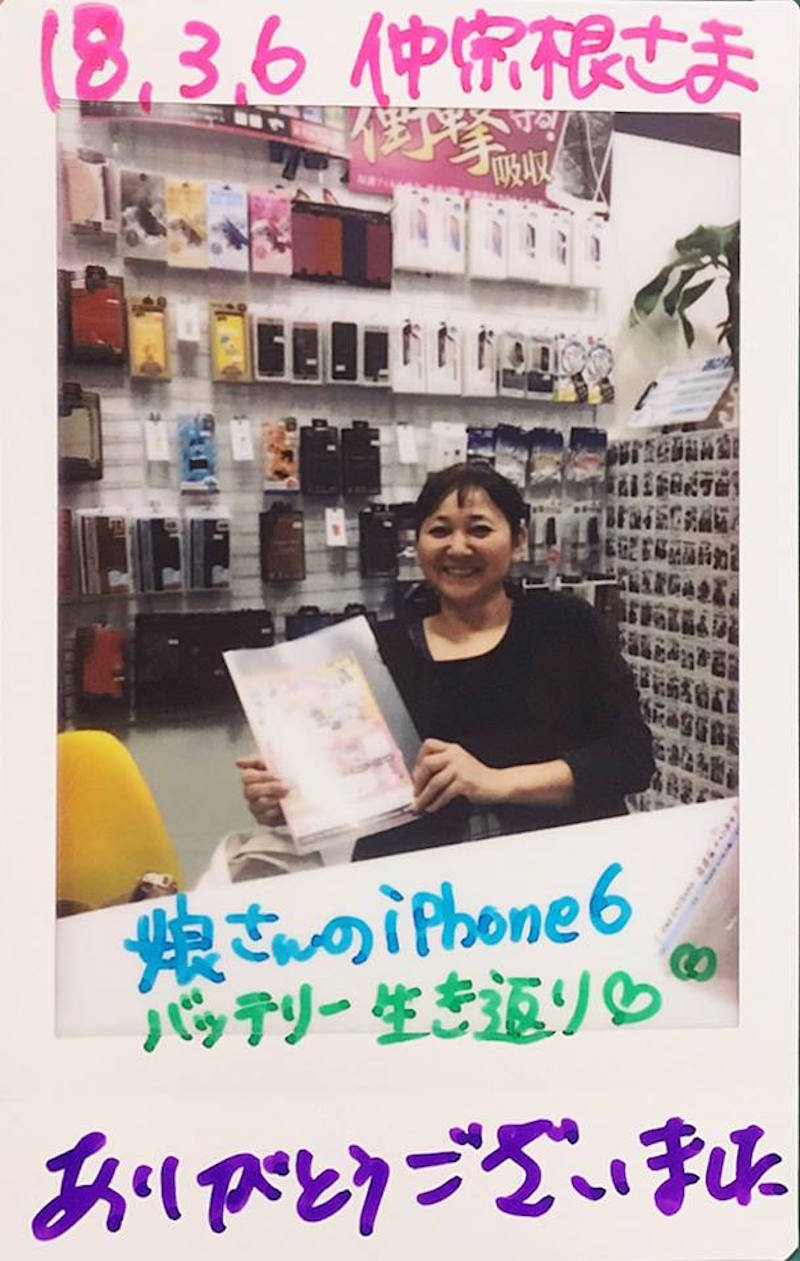 18,3,6 仲宗根さま
衝撃 守る!
吸収
娘さんのiPhone6
バッテリー生き返り
ありがとうございました